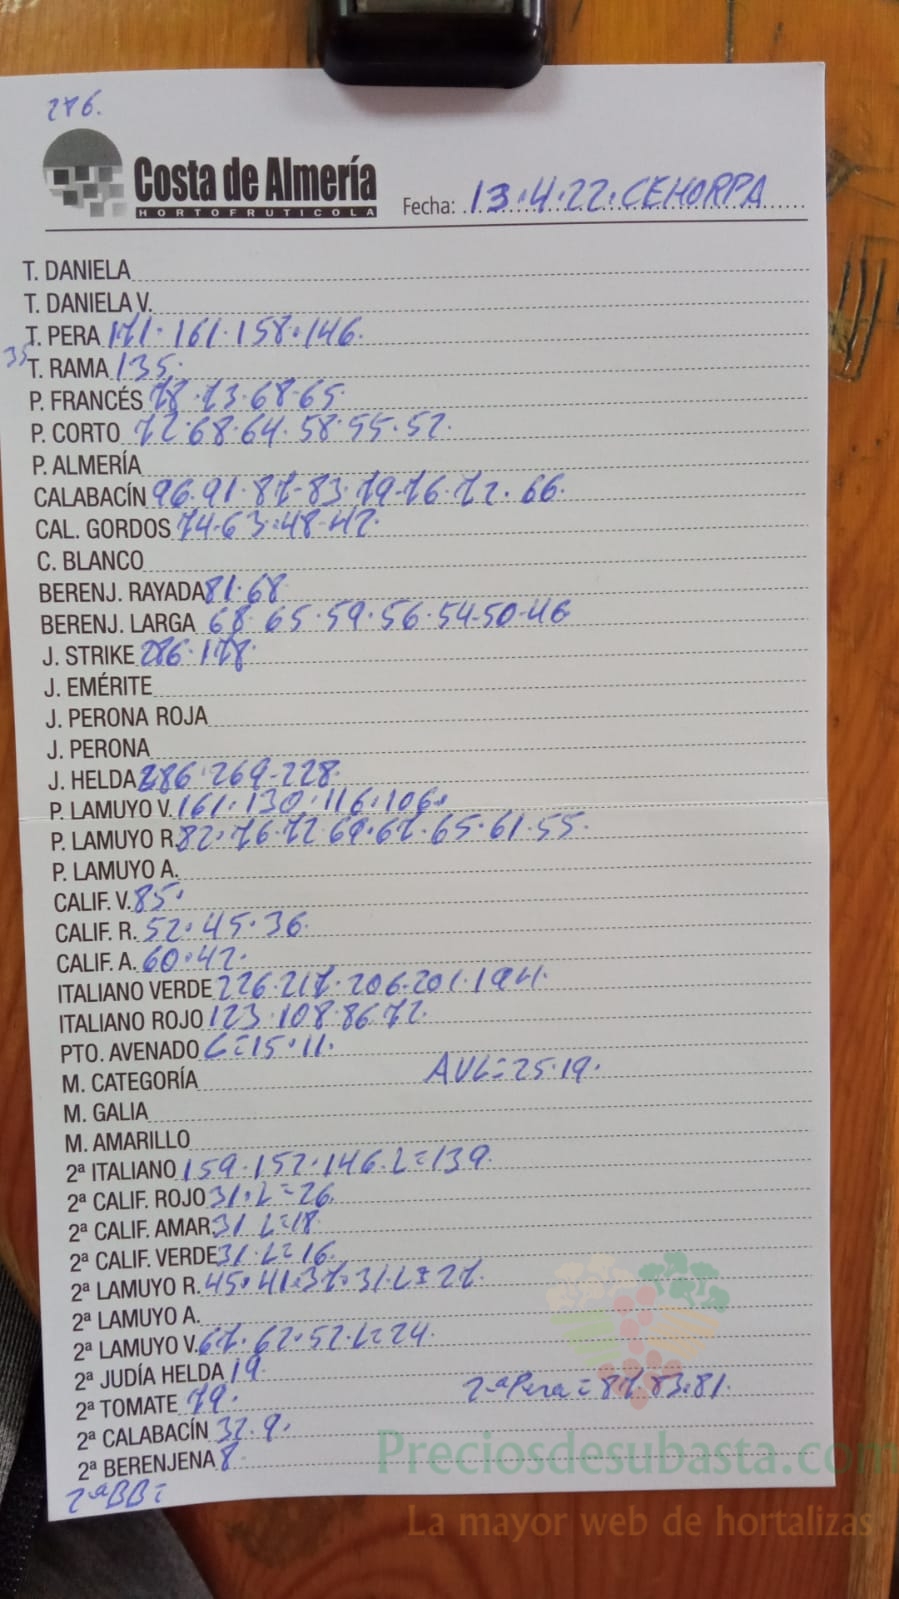 276.
Costa de Almería
HORTOFRUTICOLA
Fecha: 13.4.22.CEHORPA
T. DANIELA
T. DANIELA V.
T. PERA 171.161.158.146.
35
T. RAMA 135.
P. FRANCÉS 78.73.68-65.
P. CORTO 72.68.64.58.55.52.
P. ALMERÍA
CALABACÍN 96.91.87-83.79-76.72.66.
CAL. GORDOS 74-63.48-42.
C. BLANCO
BERENJ. RAYADA 81.68.
BERENJ. LARGA 68.65.59.56.54-50-46
J. STRIKE 286.178.
J. EMÉRITE
J. PERONA ROJA
J. PERONA
J. HELDA 286.269-228.
P. LAMUYO V. 161.130.116.106.
P. LAMUYO R. 82.76.72 69.67.65.61.55.
P. LAMUYO A.
CALIF. V. 85.
CALIF. R. 52.45.36.
CALIF. A. 60.42.
ITALIANO VERDE 226.217.206.201.194.
ITALIANO ROJO 123.108.86.72.
PTO. AVENADO L=15.11.
AVL=25.19.
M. CATEGORÍA
M. GALIA
M. AMARILLO
2ª ITALIANO 159.152.146.L=139.
2ª CALIF. ROJO 31.L=26.
2ª CALIF. AMAR. 31 L=18.
2ª CALIF. VERDE 31.L=16.
2ª LAMUYO R. 45.41.37.31.L=27.
2ª LAMUYO A.
2ª LAMUYO V. 67.62.52.L=24.
2ª JUDÍA HELDA 19.
2ª TOMATE 79.
2ª Pera=87.83.81.
2ª CALABACÍN 32.9.
2ª BERENJENA 8.
2ªBB=
Preciosdesubasta.com
La mayor web de hortalizas